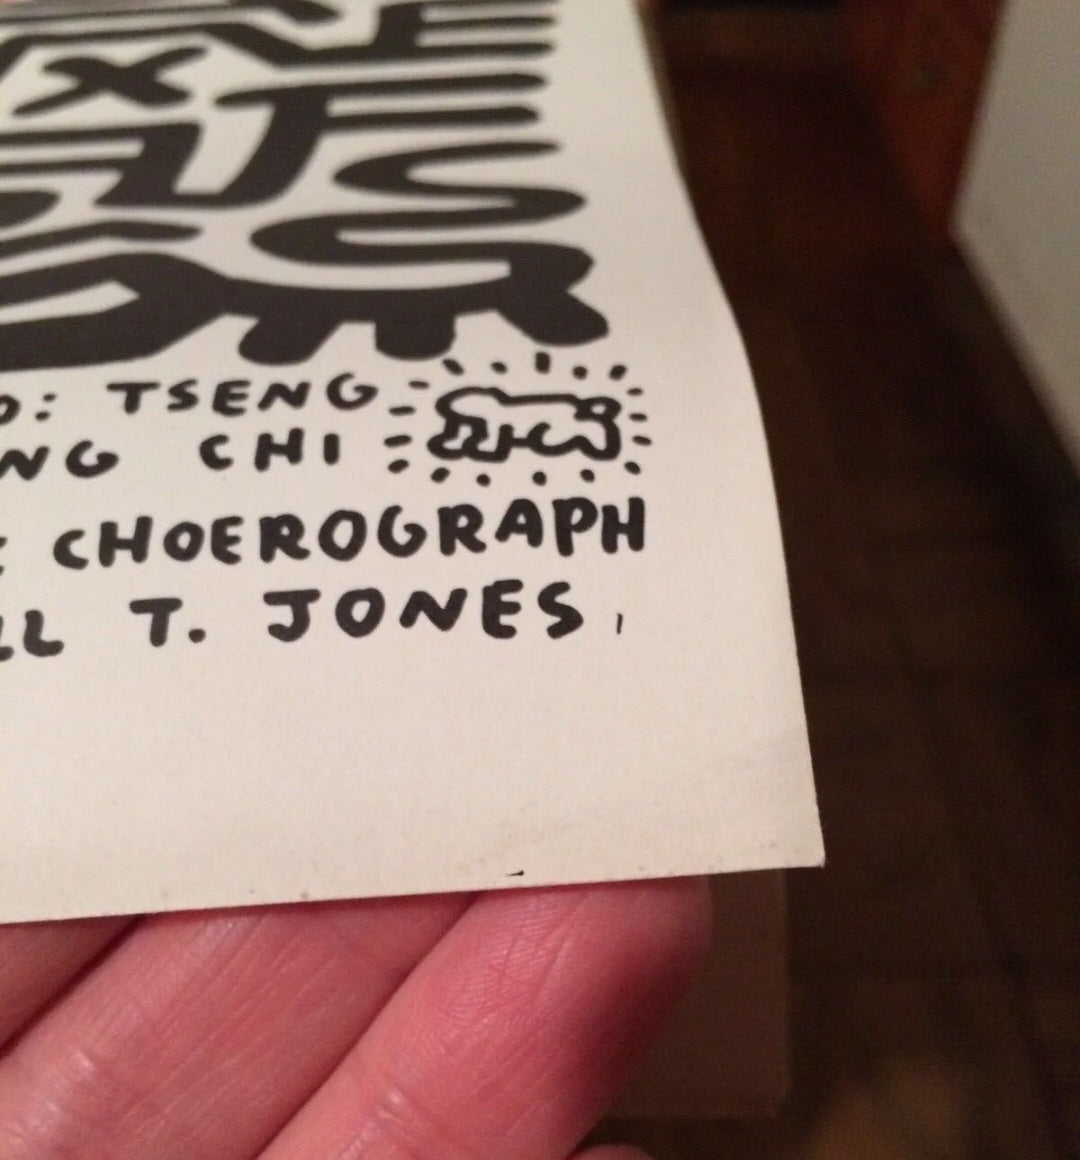 O: TSENG
NG CHI
CHOEROGRAPH
LL T. JONES,